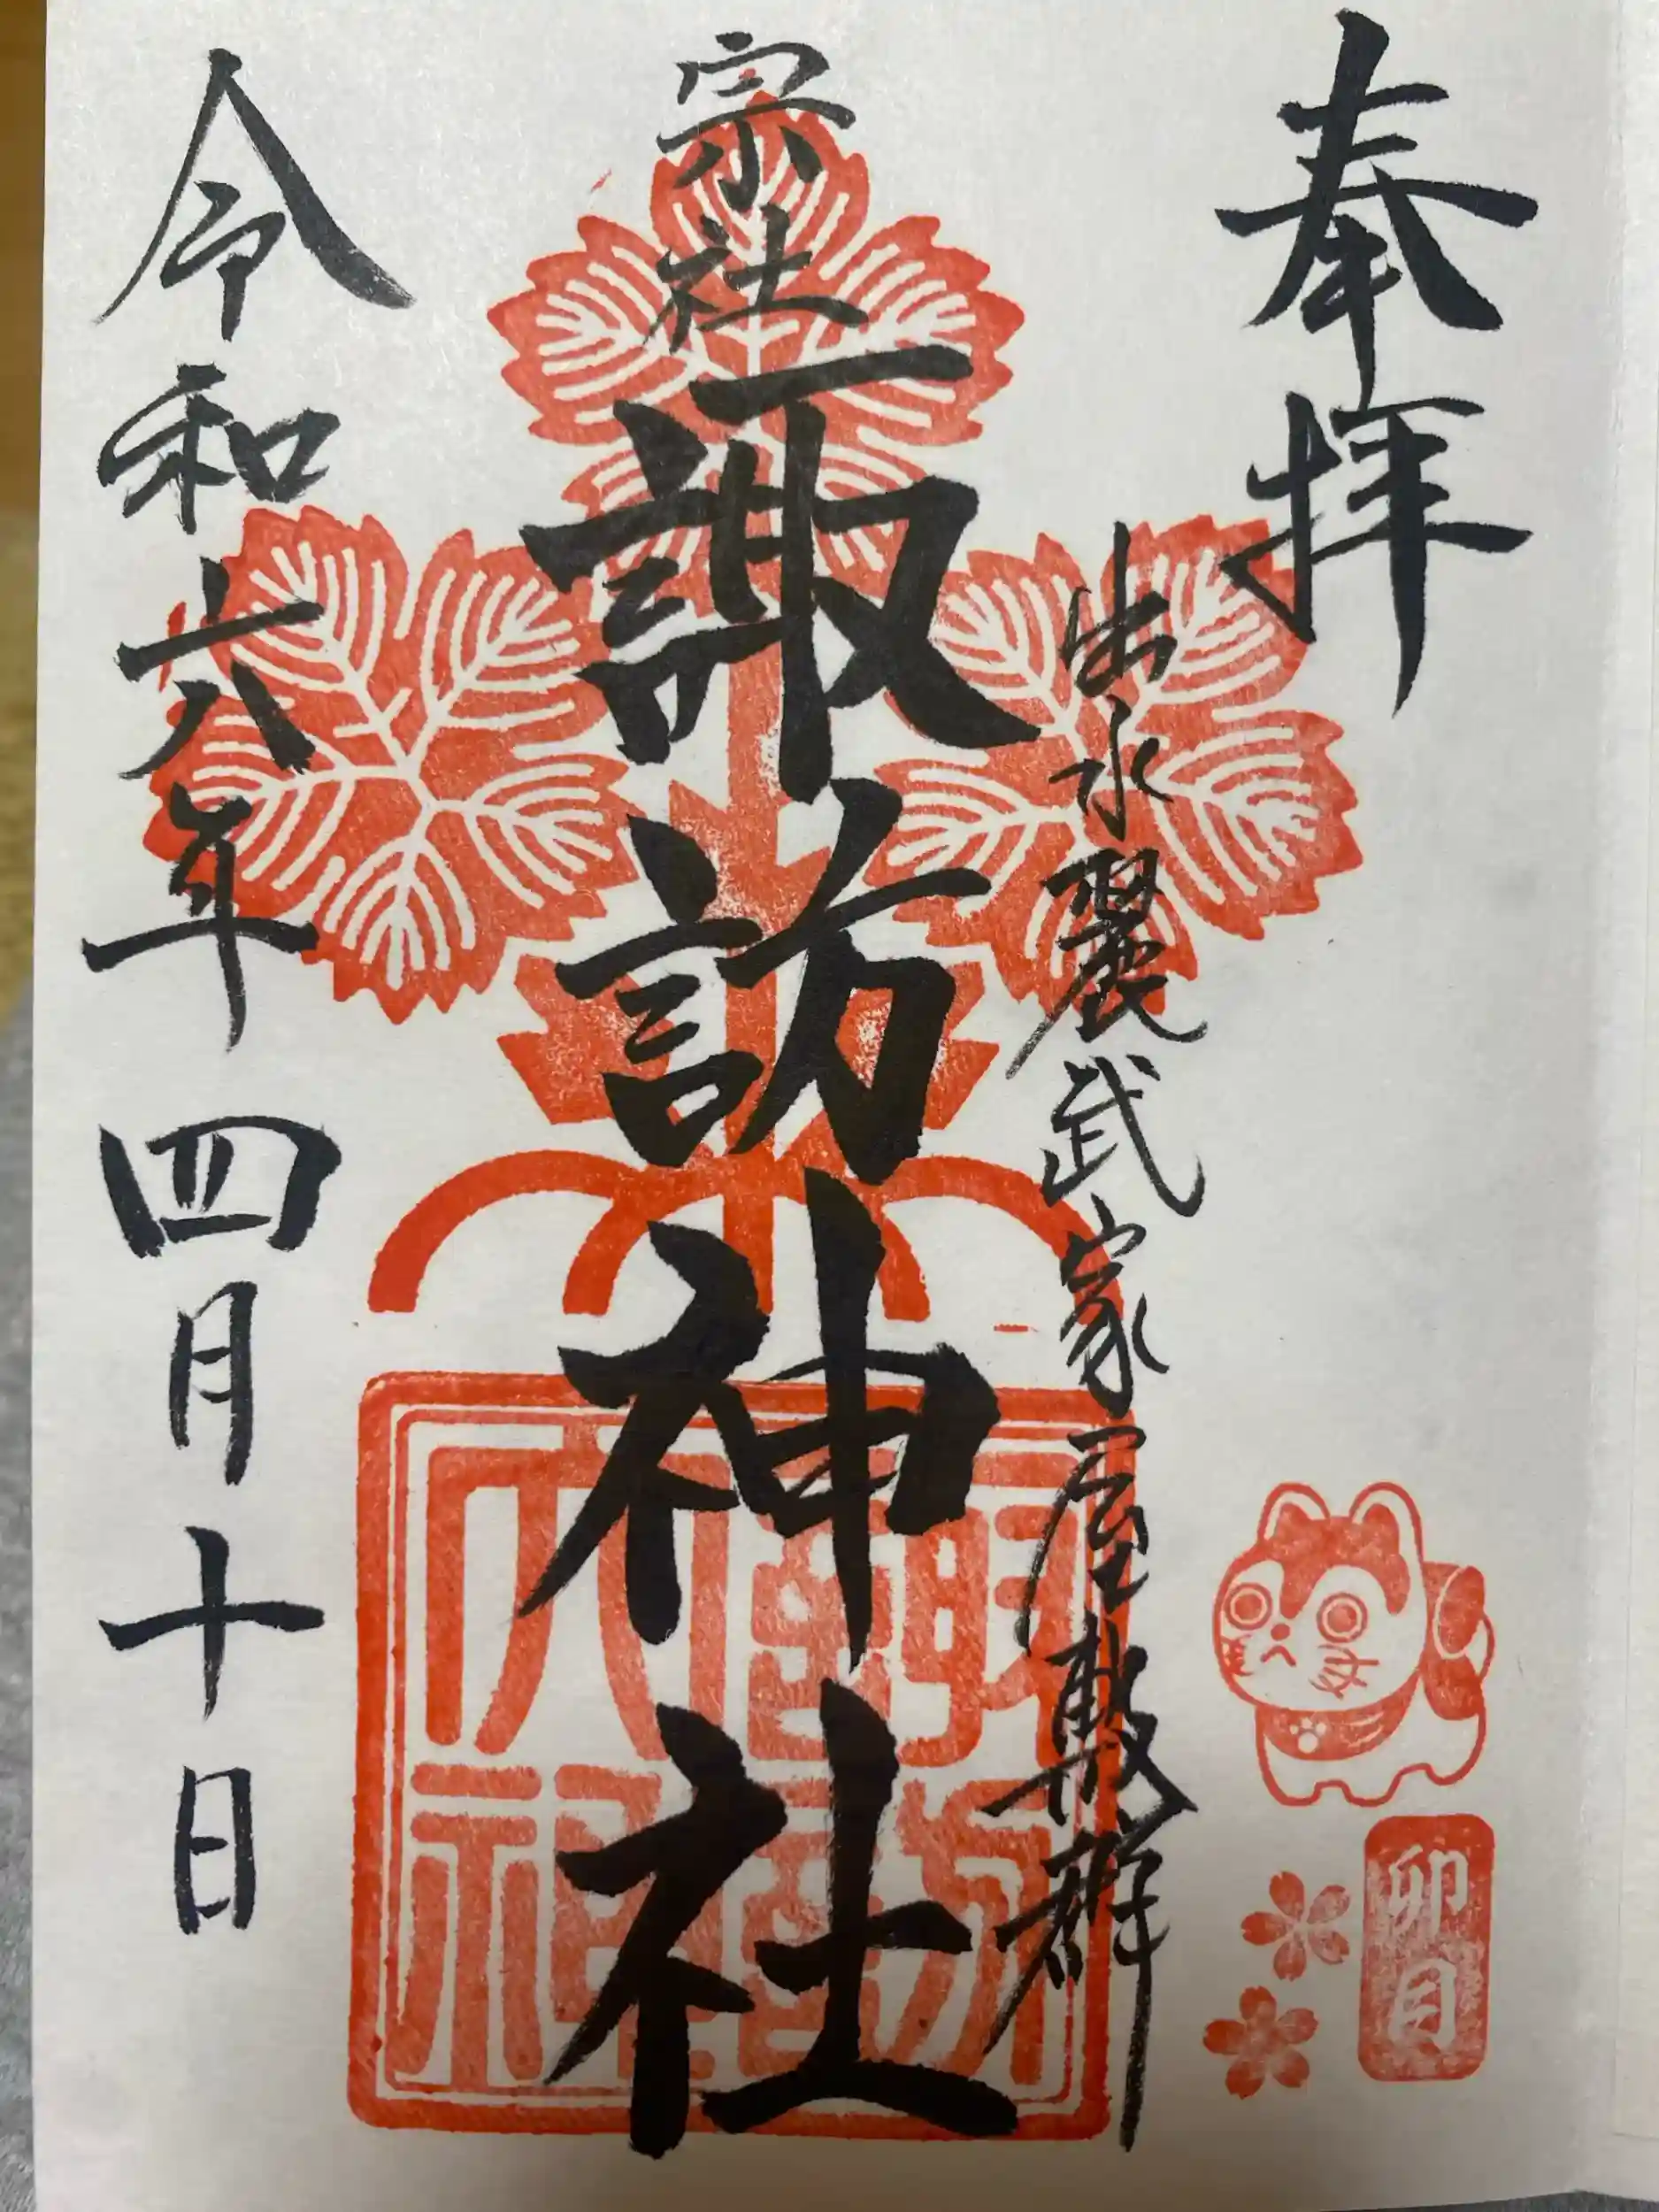 奉拝
出水麓武家屋敷群
宗社
諏訪神社
令和六年四月十日
卯月